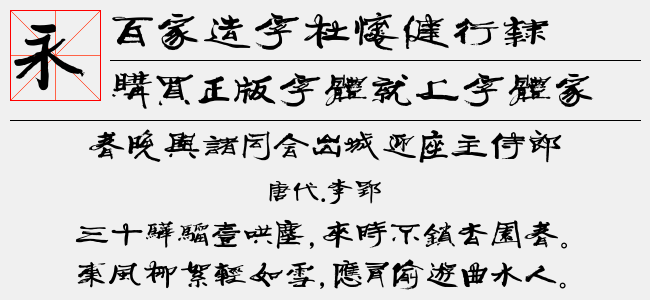 永
百家造字杜懷健行隸
購買正版字體就上字體家
春晚與諸同舍出城迎座主侍郎
唐代.李郢
三十驊騮壹哄塵,來時不鎖杏園春。
東風柳絮輕如雪,應有偷遊曲水人。